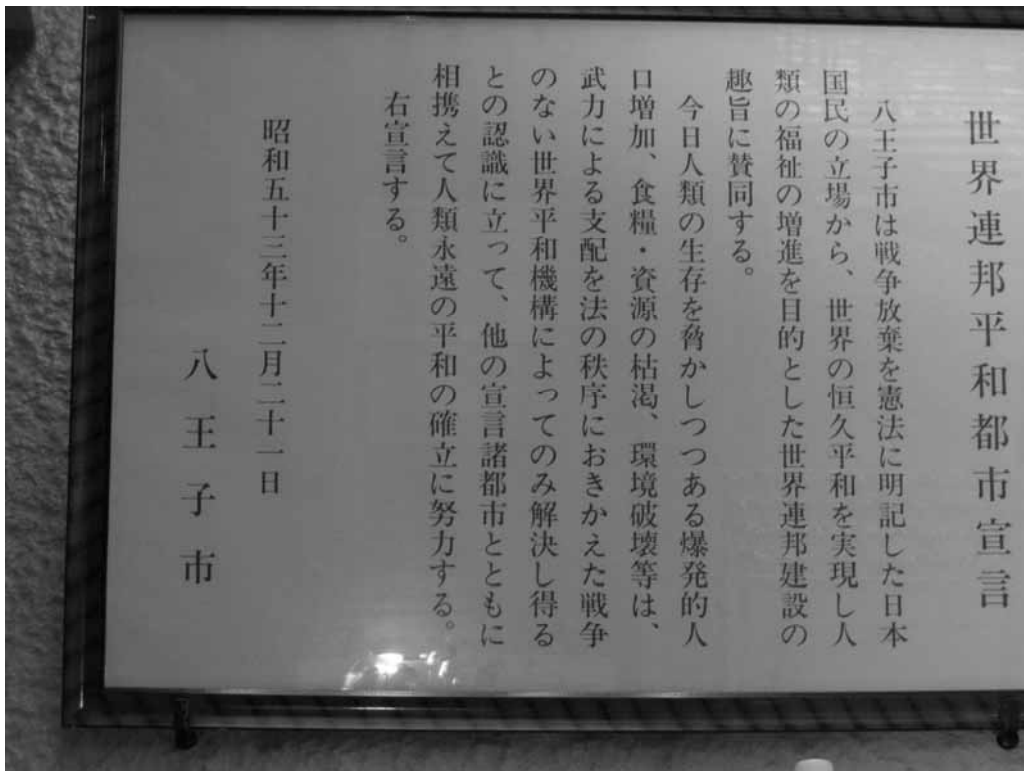 世界連邦平和都市宣言
八王子市は戦争放棄を憲法に明記した日本
国民の立場から、世界の恒久平和を実現し人
類の福祉の増進を目的とした世界連邦建設の
趣旨に賛同する。
今日人類の生存を脅かしつつある爆発的人
口増加、食糧・資源の枯渇、環境破壊等は、
武力による支配を法の秩序におきかえた戦争
のない世界平和機構によってのみ解決し得る
との認識に立って、他の宣言諸都市とともに
相携えて人類永遠の平和の確立に努力する。
右宣言する。
昭和五十三年十二月二十一日
八王子市